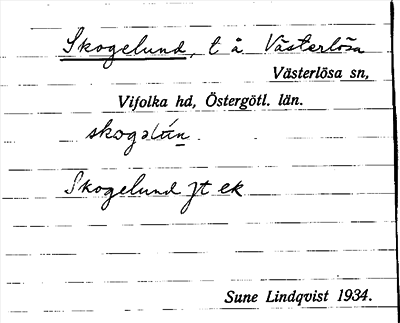 Skogelund, t å Västerlösa
Västerlösa sn,
Vifolka hd, Östergötl. län.
skogəlún.
Skogelund jt ek
Sune Lindqvist 1934.